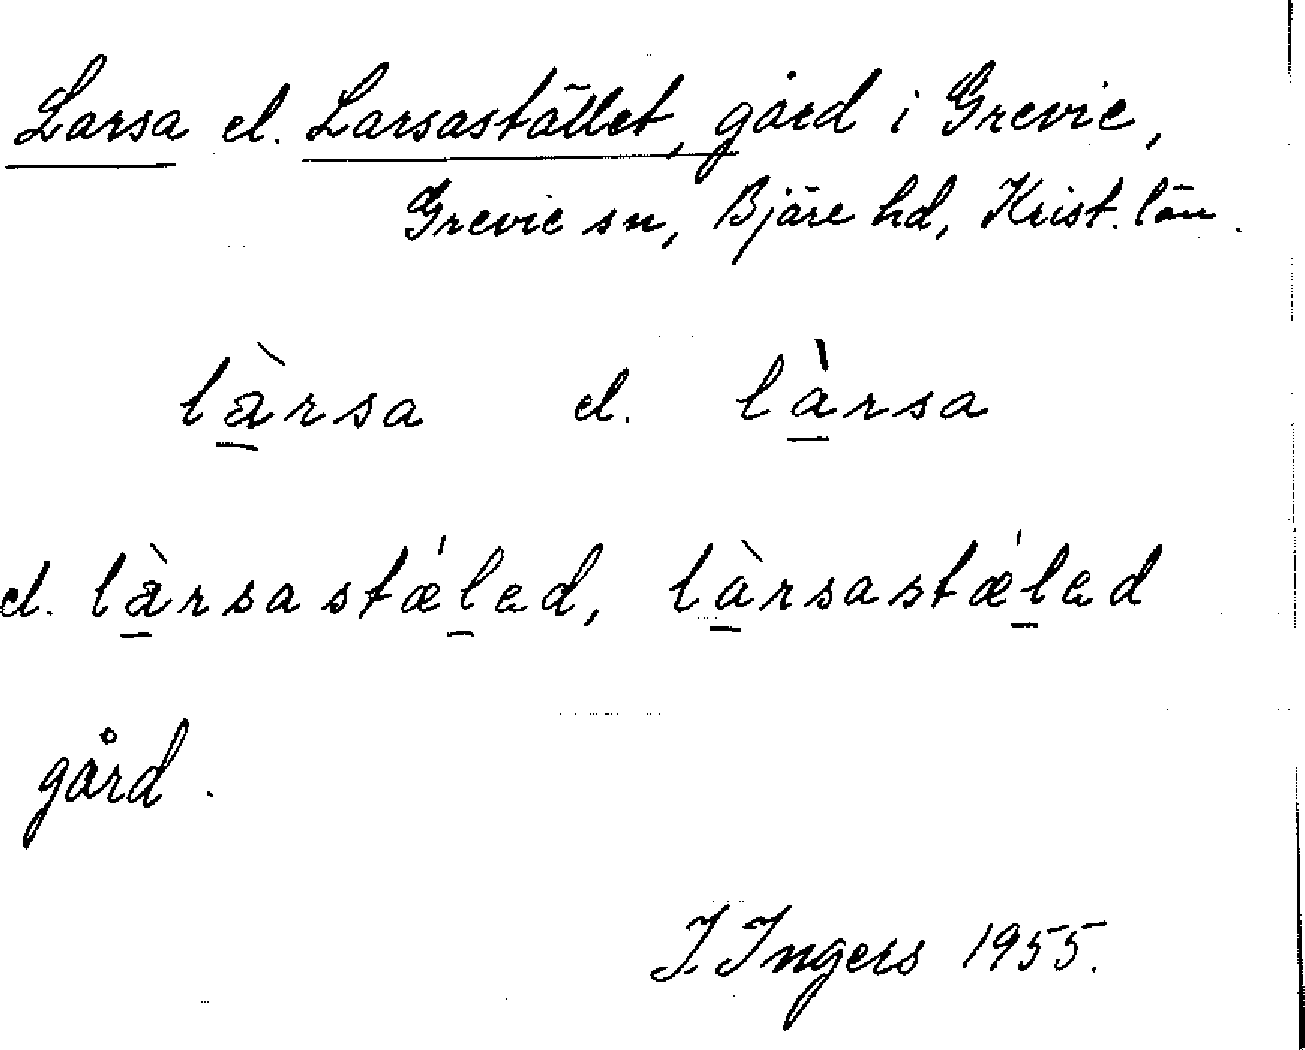 Larsa el. Larsastället, gård i Grevie,
Grevie sn, Bjäre hd, Krist. län.
là̱rsa el. là̱rsa
el. là̱rsastǽḻed, là̱rsastǽḻed
gård.
I. Ingers 1955.